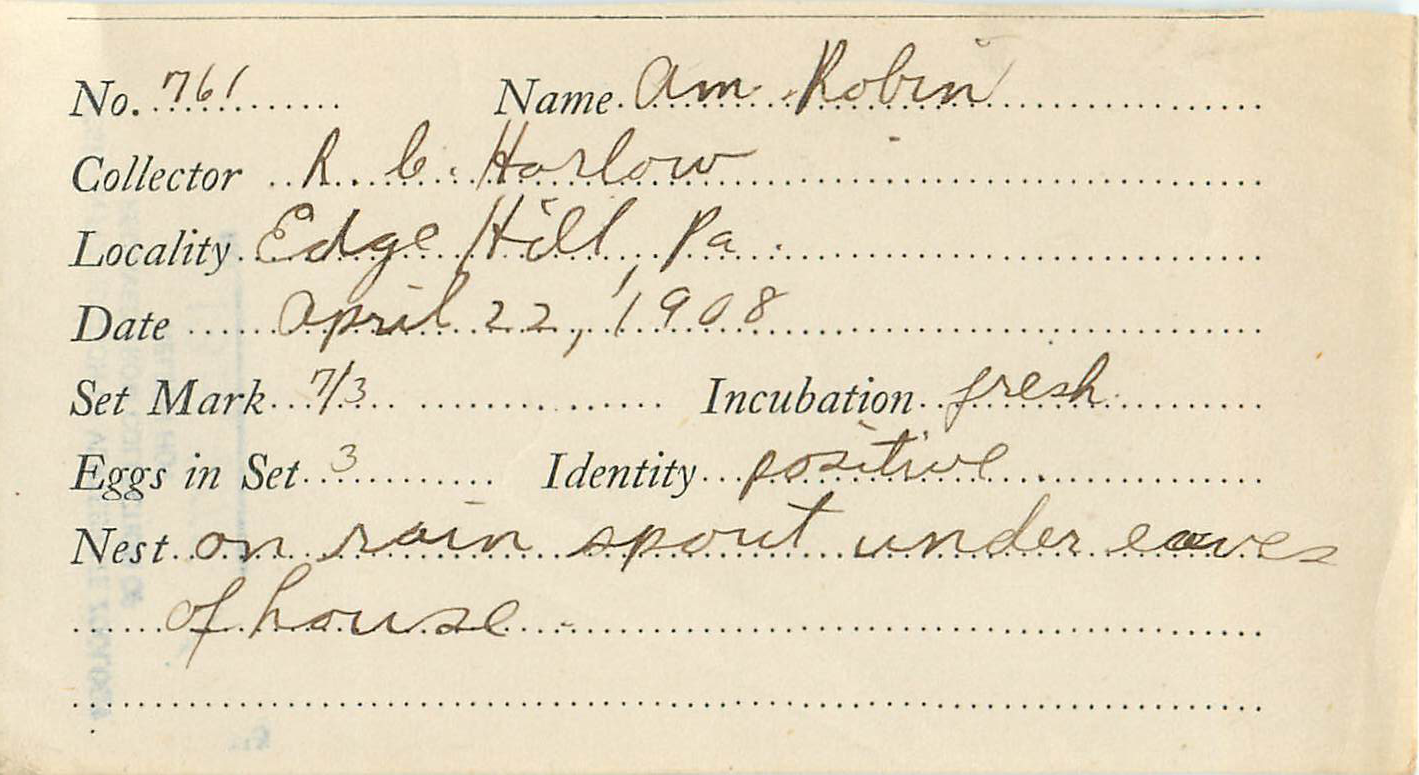 No. 761 Name Am. Robin
Collector R. C. Harlow
Locality Edge Hill, Pa.
Date April 22, 1908
Set Mark 7/3 Incubation fresh
Eggs in Set 3 Identity positive.
Nest on rain spout under eaves
of house